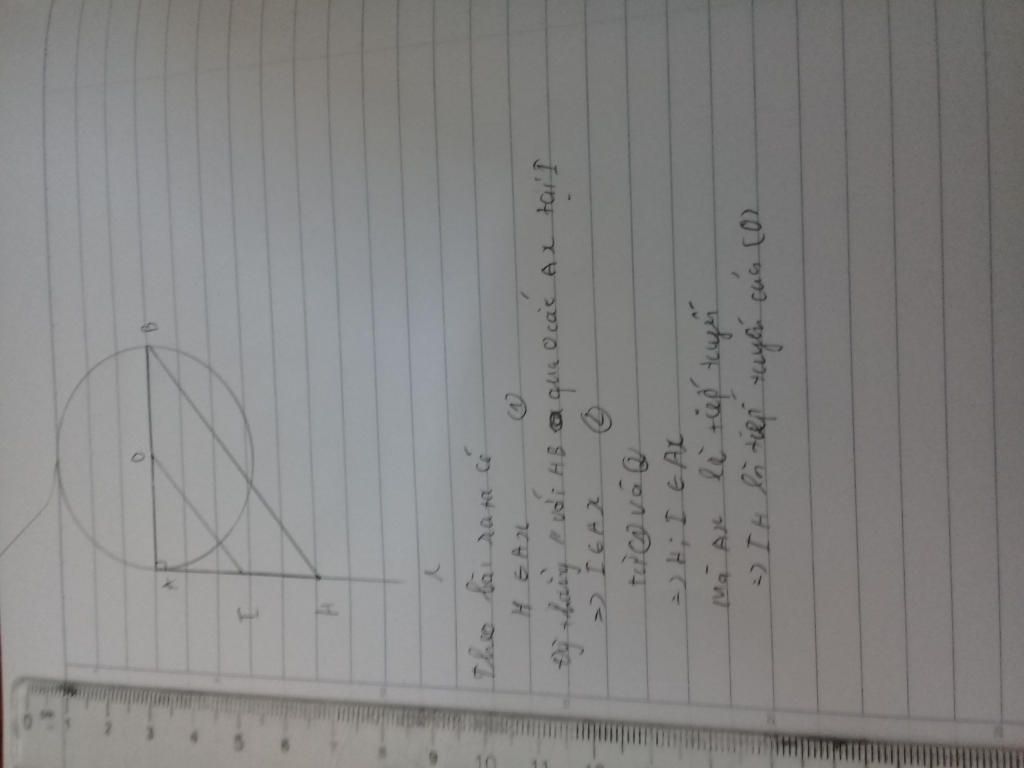 B
O
A
I
H
x
Theo bài ra ta có
H ∈ Ax (1)
đg thẳng // với HB qua O cắt Ax tại I
=> I ∈ Ax (2)
từ (1) và (2)
=> H, I ∈ Ax
Mà Ax là tiếp tuyến
=> IH là tiếp tuyến của (O)
0 1 2 3 4 5 6 7 8 9 10 11